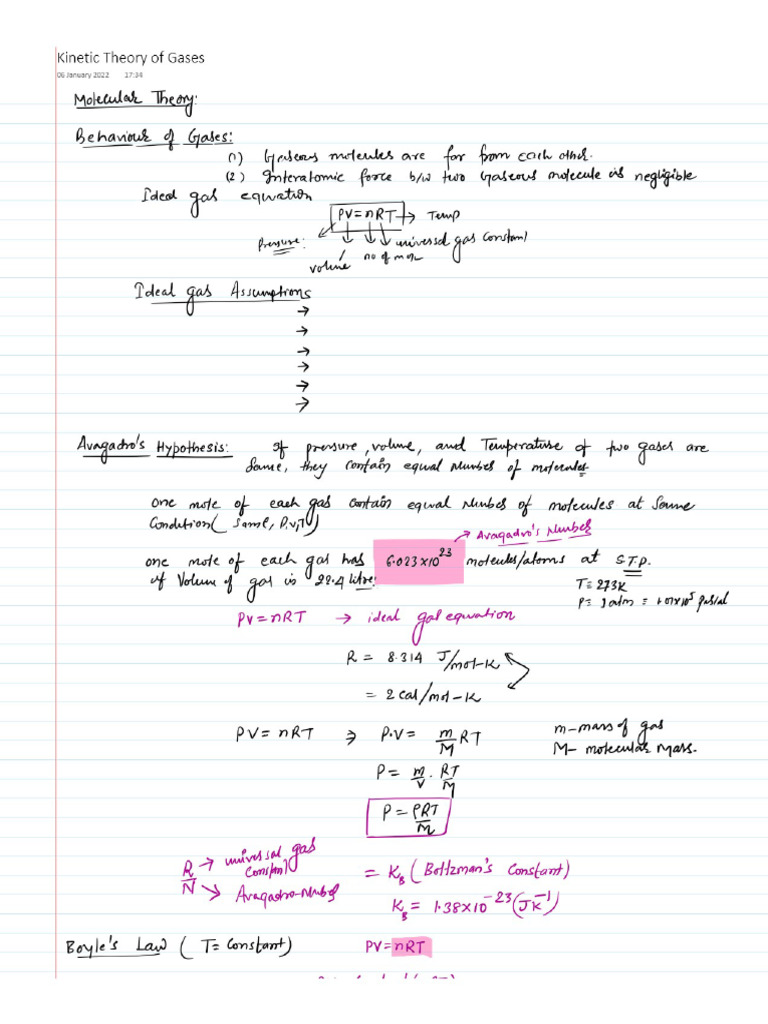 Kinetic Theory of Gases
06 January 2022 17:34
Molecular Theory:
Behaviour of Gases:
(1) Gaseous molecules are far from each other.
(2) Interatomic force b/w two Gaseous molecule is negligible
Ideal gas equation
PV = nRT → Temp
Pressure: universal gas constant
volume no of mole
Ideal gas Assumptions
→
→
→
→
→
→
Avagadro's Hypothesis: If pressure, volume, and Temperature of two gases are
same, they contain equal number of molecules
one mole of each gas contain equal number of molecules at same
Condition ( same, P,V,T)
→ Avagadro's Number
one mole of each gas has 6.023×10²³ molecules/atoms at S.T.P.
if volume of gas is 22.4 litre. T = 273K
P = 1 atm = 1.01×10⁵ pascal
PV = nRT → ideal gas equation
R = 8.314 J/mol-K
= 2 cal/mol-K
PV = nRT ⇒ P.V = m/M RT m-mass of gas
M- molecular mass.
P = m/V . RT/M
P = ρRT/M
R/N → universal gas constant = K_B (Boltzman's constant)
→ Avagadro-Number K_B = 1.38×10⁻²³ (JK⁻¹)
Boyle's Law ( T = Constant) PV = nRT